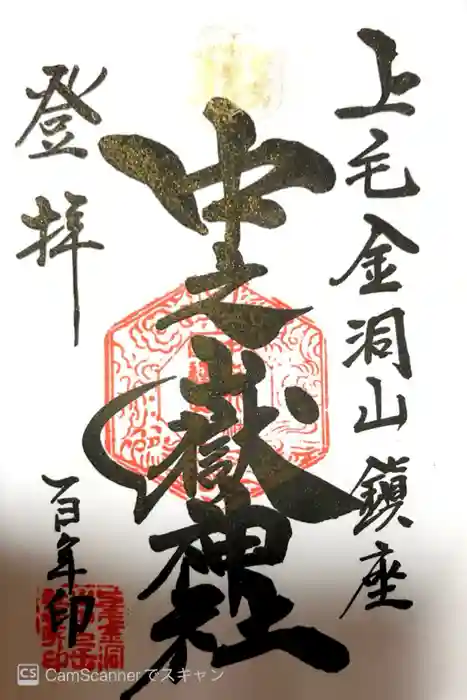 上毛金洞山鎮座
中之嶽神社
登拝
百年印
CS CamScannerでスキャン